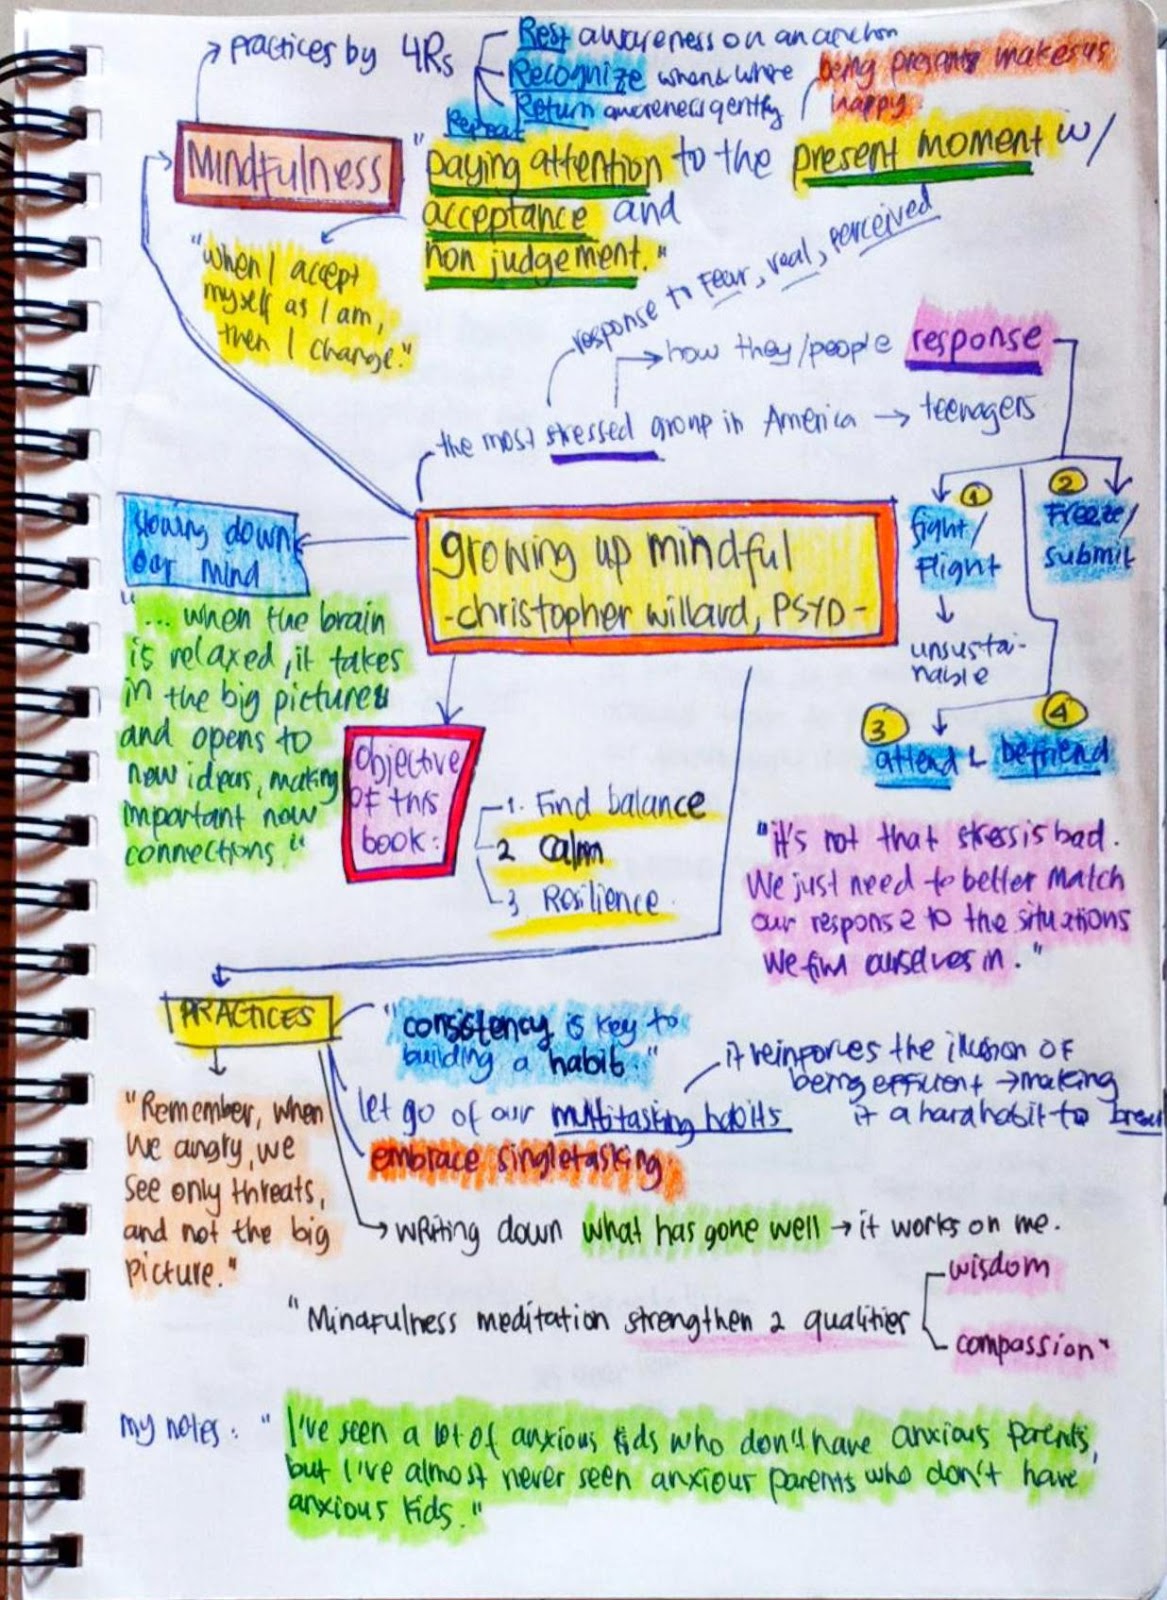 practices by 4Rs
Rest awareness on an anchor
Recognize when & where
Return awareness gently
Repeat
being present makes us
happy.
Mindfulness
"paying attention to the present moment w/
acceptance and
non judgement."
"when I accept
myself as I am,
then I change."
response to fear, real, perceived
how they/people response
the most stressed group in America → teenagers
1
fight/
flight
unsustai-
nable
2
Freeze/
submit
3
attend &
4
befriend
slowing down
our mind
growing up mindful
-christopher willard, PSYD-
"... when the brain
is relaxed, it takes
in the big picture
and opens to
new ideas, making
important new
connections."
Objective
of this
book:
1. Find balance
2 calm
3 Resilience.
"it's not that stress is bad.
We just need to better match
our response to the situations
we find ourselves in."
PRACTICES
"consistency is key to
building a habit."
let go of our multitasking habits
it reinforces the illusion of
being efficient → making
it a hard habit to break
embrace singletasking
"Remember, when
we angry, we
see only threats,
and not the big
picture."
→ writing down what has gone well → it works on me.
"Mindfulness meditation strengthen 2 qualities
wisdom
compassion"
my notes: "I've seen a lot of anxious kids who don't have anxious parents,
but I've almost never seen anxious parents who don't have
anxious kids."